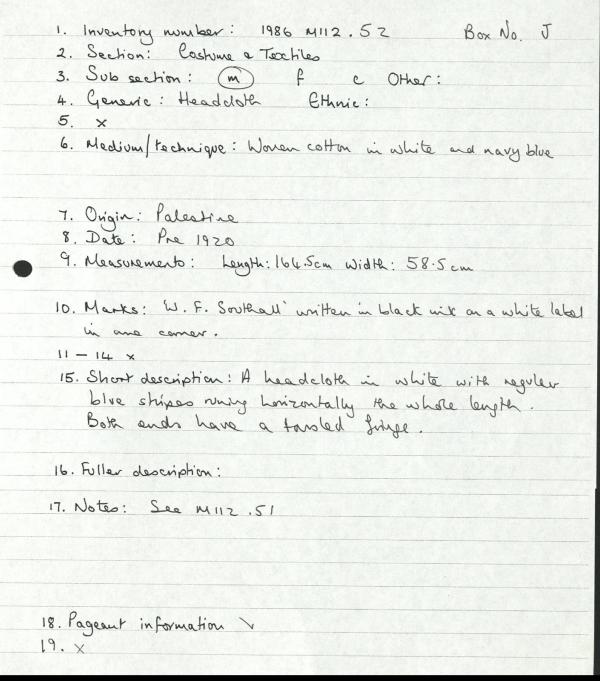 1. Inventory number: 1986 M112.52 Box No. J
2. Section: Costume & Textiles
3. Sub section: m f c Other:
4. Generic: Headcloth Ethnic:
5. x
6. Medium/technique: Woven cotton in white and navy blue
7. Origin: Palestine
8. Date: Pre 1920
9. Measurements: Length: 164.5cm Width: 58.5cm
10. Marks: 'W. F. Southall' written in black ink on a white label
in one corner.
11 - 14 x
15. Short description: A headcloth in white with regular
blue stripes runing horizontally the whole length.
Both ends have a tassled fringe.
16. Fuller description:
17. Notes: See M112.51
18. Pageant information
19. x